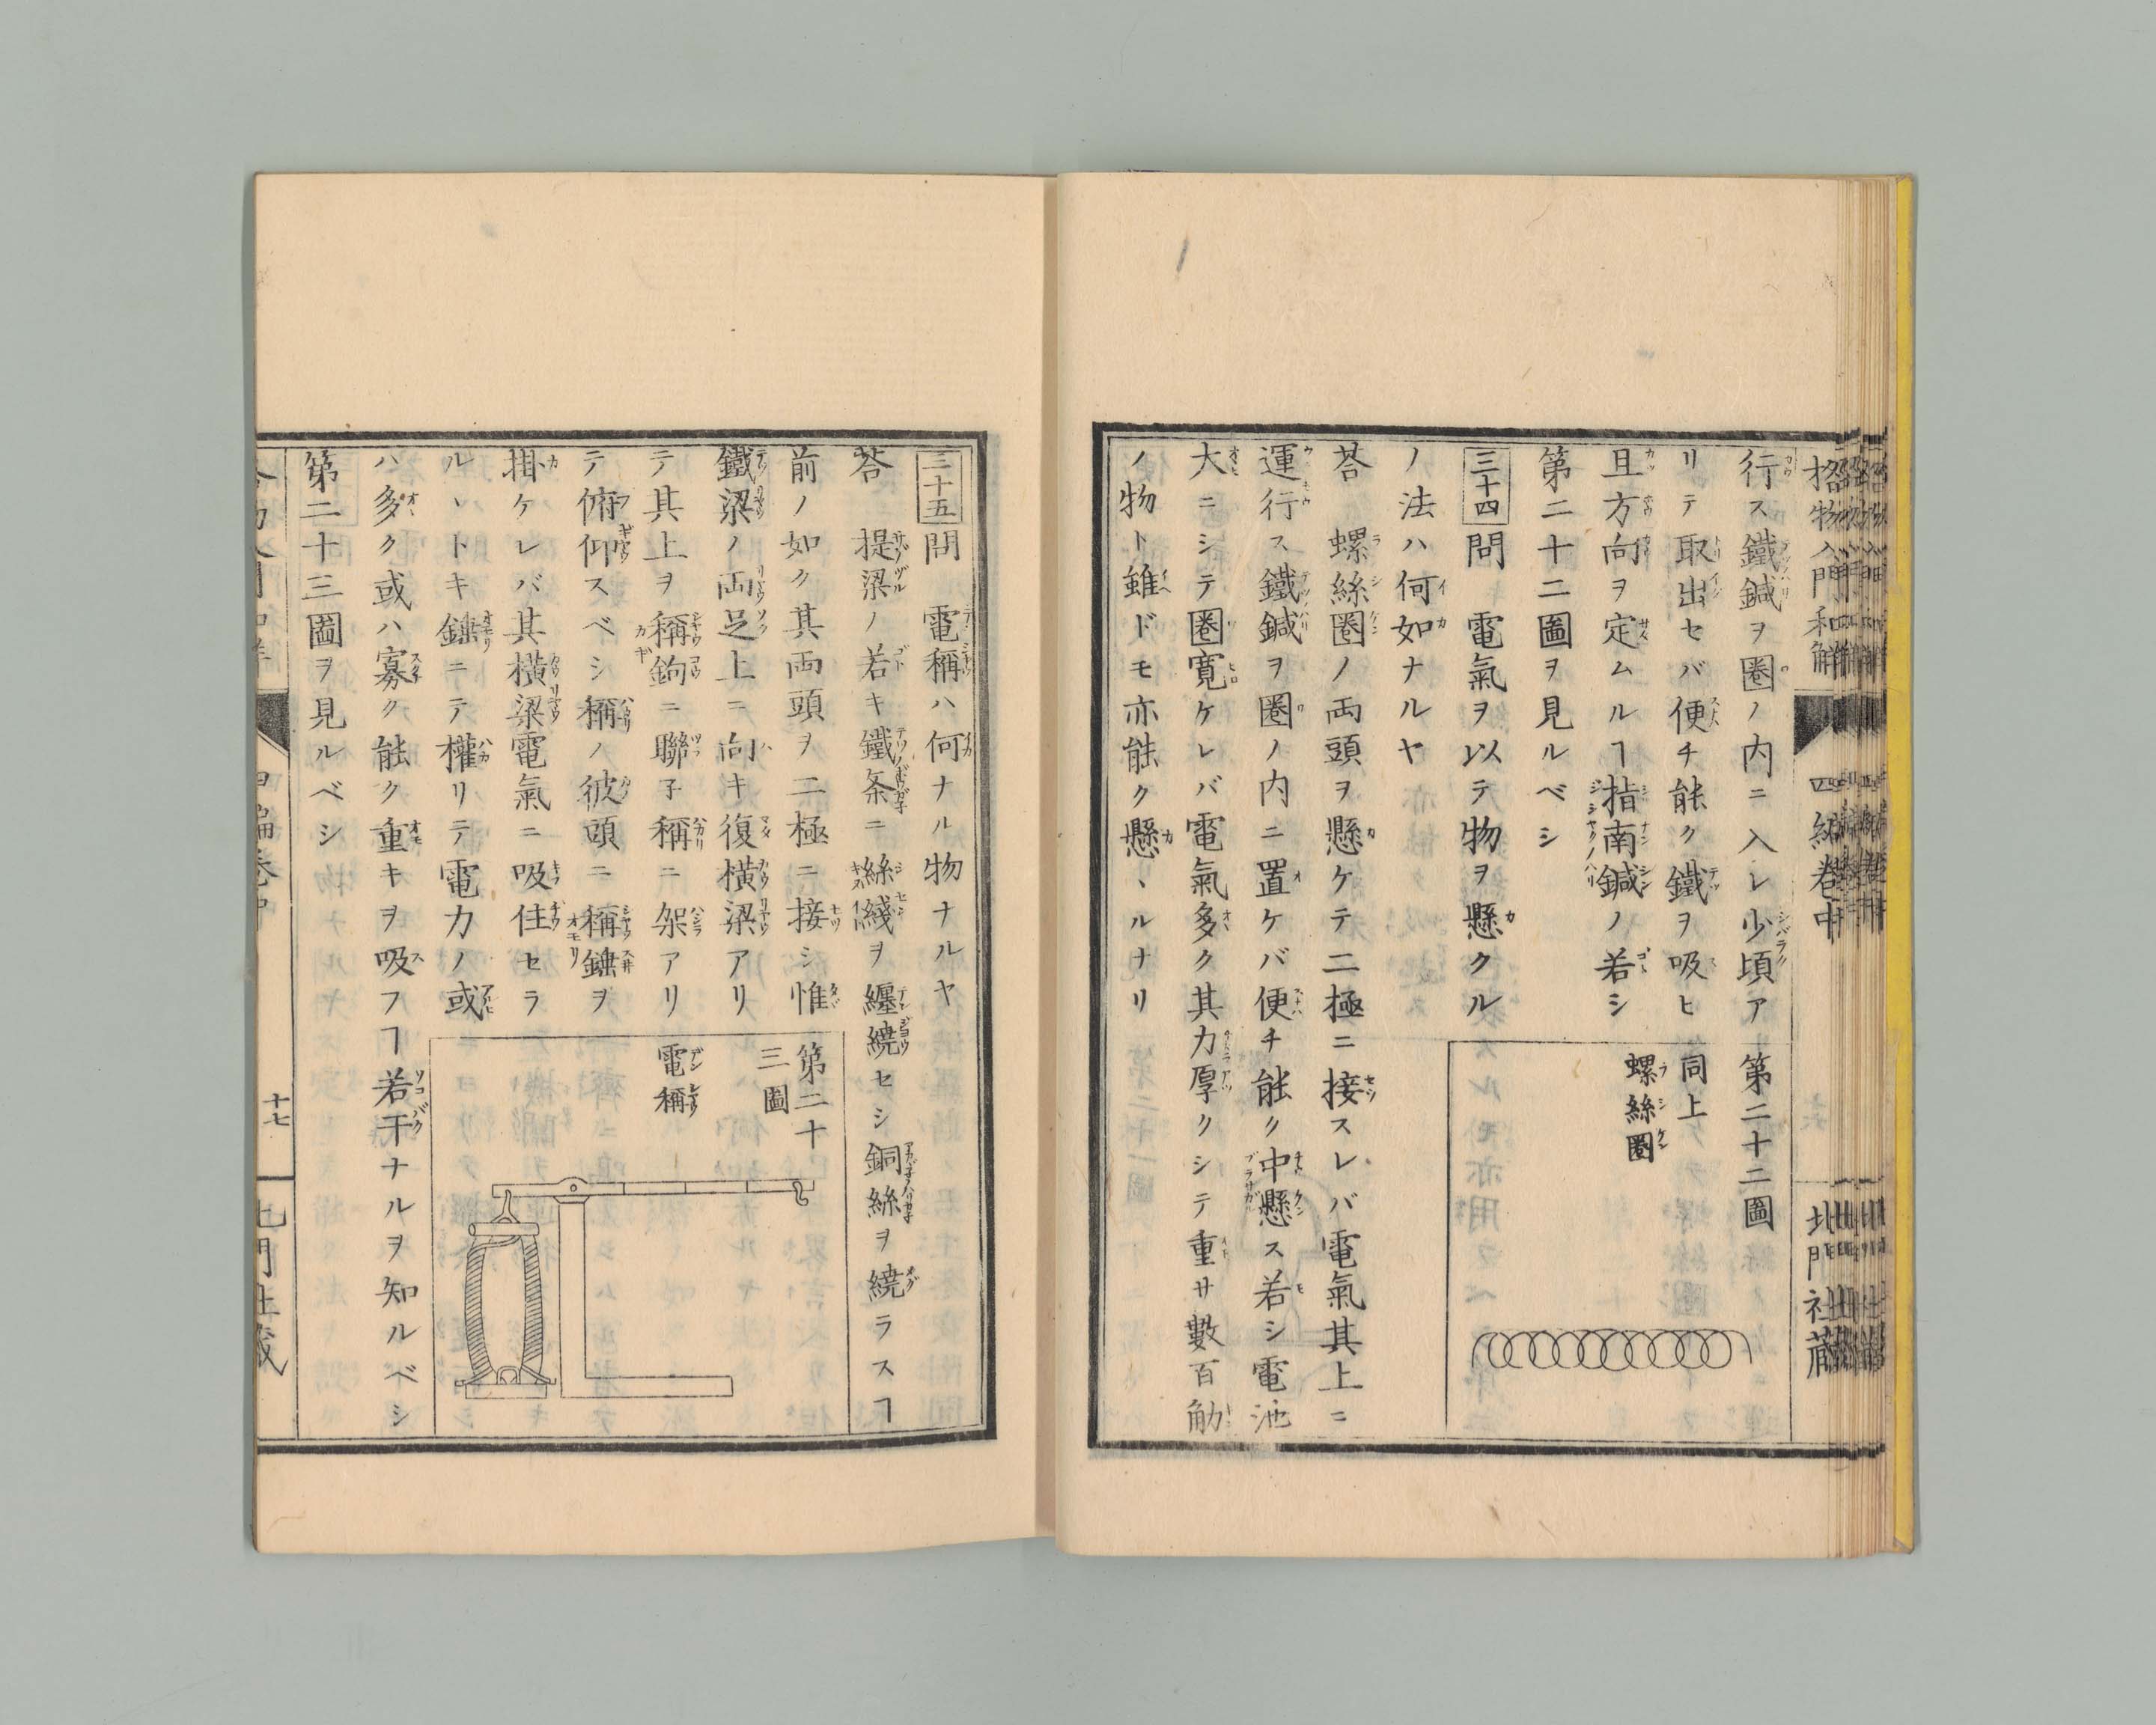 格物入門和解 四編卷中 北門社藏
行ス鐵鍼ヲ圈ノ内ニ入レ少頃ア
リテ取出セバ便チ能ク鐵ヲ吸ヒ
且方向ヲ定ムルヿ指南鍼ノ若シ
第二十二圖ヲ見ルベシ
第二十二圖
同上
螺絲圈
三十四問 電氣ヲ以テ物ヲ懸クル
ノ法ハ何如ナルヤ
荅 螺絲圈ノ両頭ヲ懸ケテ二極ニ接スレバ電氣其上ニ
運行ス鐵鍼ヲ圈ノ内ニ置ケバ便チ能ク中懸ス若シ電池
大ニシテ圈寛ケレバ電氣多ク其力厚クシテ重サ數百觔
ノ物ト雖ドモ亦能ク懸ヽルナリ
三十五問 電稱ハ何ナル物ナルヤ
荅 提梁ノ若キ鐵条ニ絲綫ヲ纏繞セシ銅絲ヲ繞ラスヿ
前ノ如ク其両頭ヲ二極ニ接シ惟
鐵梁ノ両足上ニ向キ復横梁アリ
テ其上ヲ稱鉤ニ聯子稱ニ架アリ
テ俯仰スベシ稱ノ彼頭ニ稱錘ヲ
掛ケレバ其横梁電氣ニ吸住セラ
ルヽトキ錘ニテ權リテ電力ノ或
ハ多ク或ハ寡ク能ク重キヲ吸フヿ若干ナルヲ知ルベシ
第二十三圖ヲ見ルベシ
第二十
三圖
電稱
十七